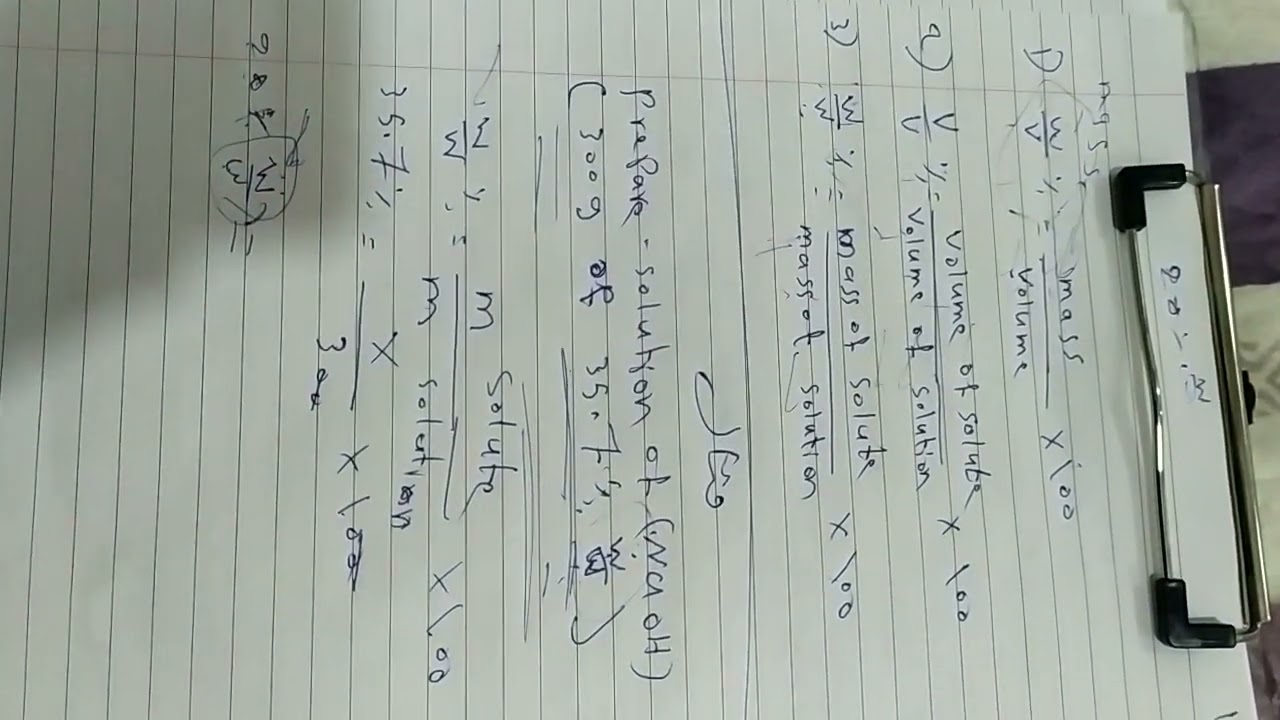 mass
1) w/v % = mass / volume × 100
2) v/v % = volume of solute / volume of solution × 100
3) w/w % = mass of solute / mass of solution × 100
مثال
Prepare solution of (NaOH)
(300g of 35.7% w/w)
w/w % = m solute / m solution × 100
35.7% = X / 300 × 100